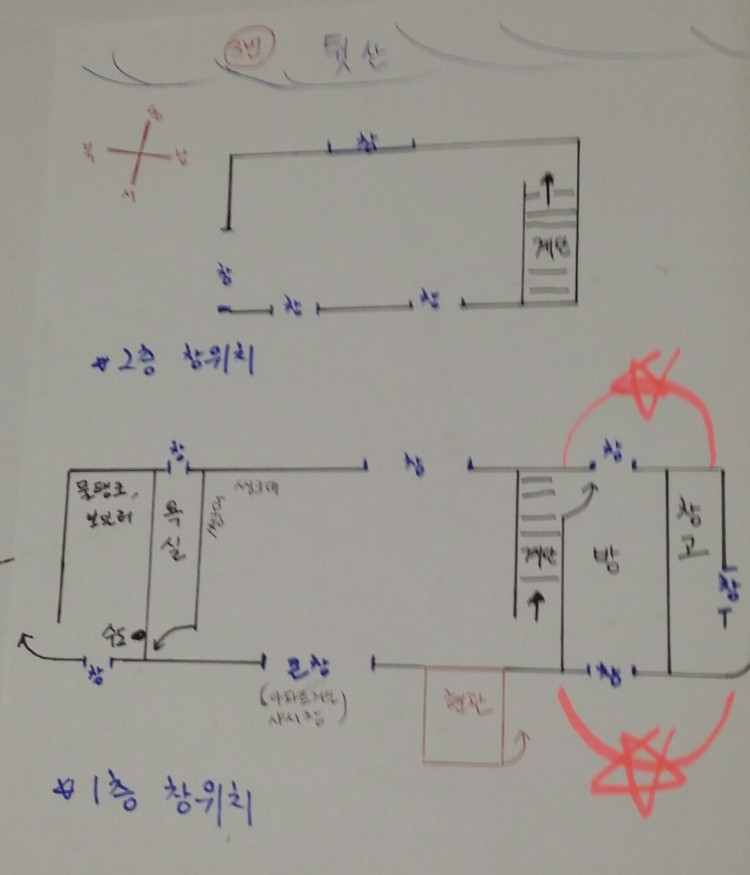 3번 뒷산
동
북 남
서
창
계단
창
창 창
*2층 창위치
창 창 창
물탱크,
보일러
욕실
씽크대
씽크대
계단
방
창고
창
수도
창
큰창
(아파트거실
샤시창)
현관
창
*1층 창위치